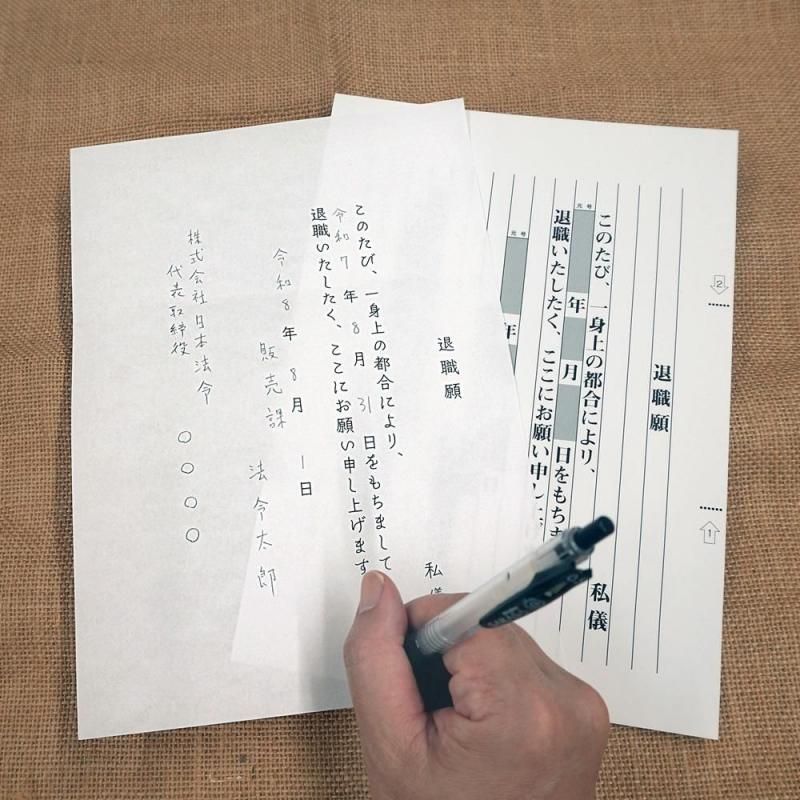 2
1
退職願
私儀
このたび、一身上の都合により、
元号 年 月 日をもちま
退職いたしたく、ここにお願い申し
元号 年
退職願
私儀
このたび、一身上の都合により、
令和7年8月31日をもちまして
退職いたしたく、ここにお願い申し上げます
令和8年8月1日
販売課 法令太郎
株式会社日本法令
代表取締役 ○○○○